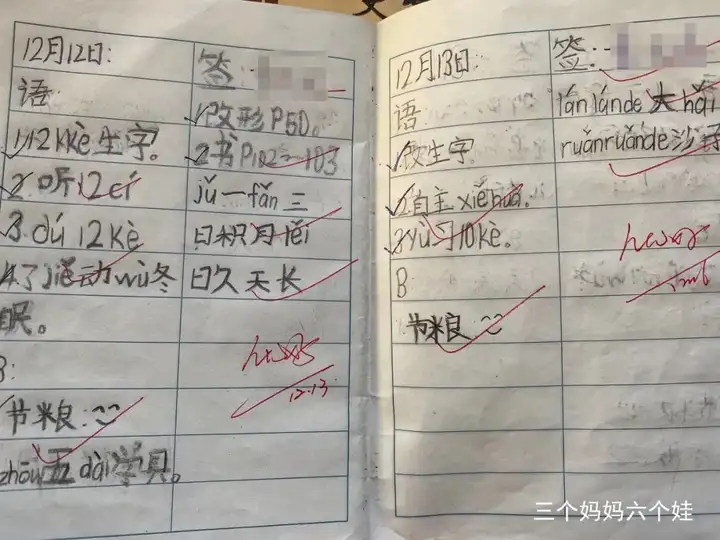 12月12日:
语
1.12kè生字。
2.听12cí
3.dú 12kè
4.了jiě动wù冬
眠。
B:
节粮:
zhōu五dài学具。
签:
1.改形P50。
2.书P102-103
jǔ一fǎn三
日积月lěi
日久天长
12.13
12月13日:
语
1.改生字
2.自主xiě huà.
3.yù习10kè。
B
节粮:
签:
lán lánde大hǎi
ruǎnruǎnde沙
三个妈妈六个娃